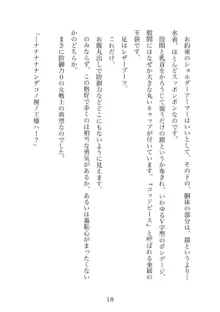 お約束のショルダーアーマーはいいとして、その下の、胴体の部分は、
水着、ほとんどスッポンポンなのです。
股間と乳首をかろうじて覆うだけの鎧というか布きれ、いわゆるＶ字型のボンテージ。
股間にはなぜか大きな丸いキャップが付いてます。『コッドピース』と呼ばれる金属の
玉袋。
足はレザーブーツ。
これだけ。
お腹丸出しで防御力などまったくないように見えます。
のみならず、この格好で歩くのは相当な勇気があるか、あるいは羞恥心がまったくない
かのどちらか。
まさに防御力０の女戦士の典型なのでした。
「―ナナナナナンダコノ裸ノ王様ハー？」
18